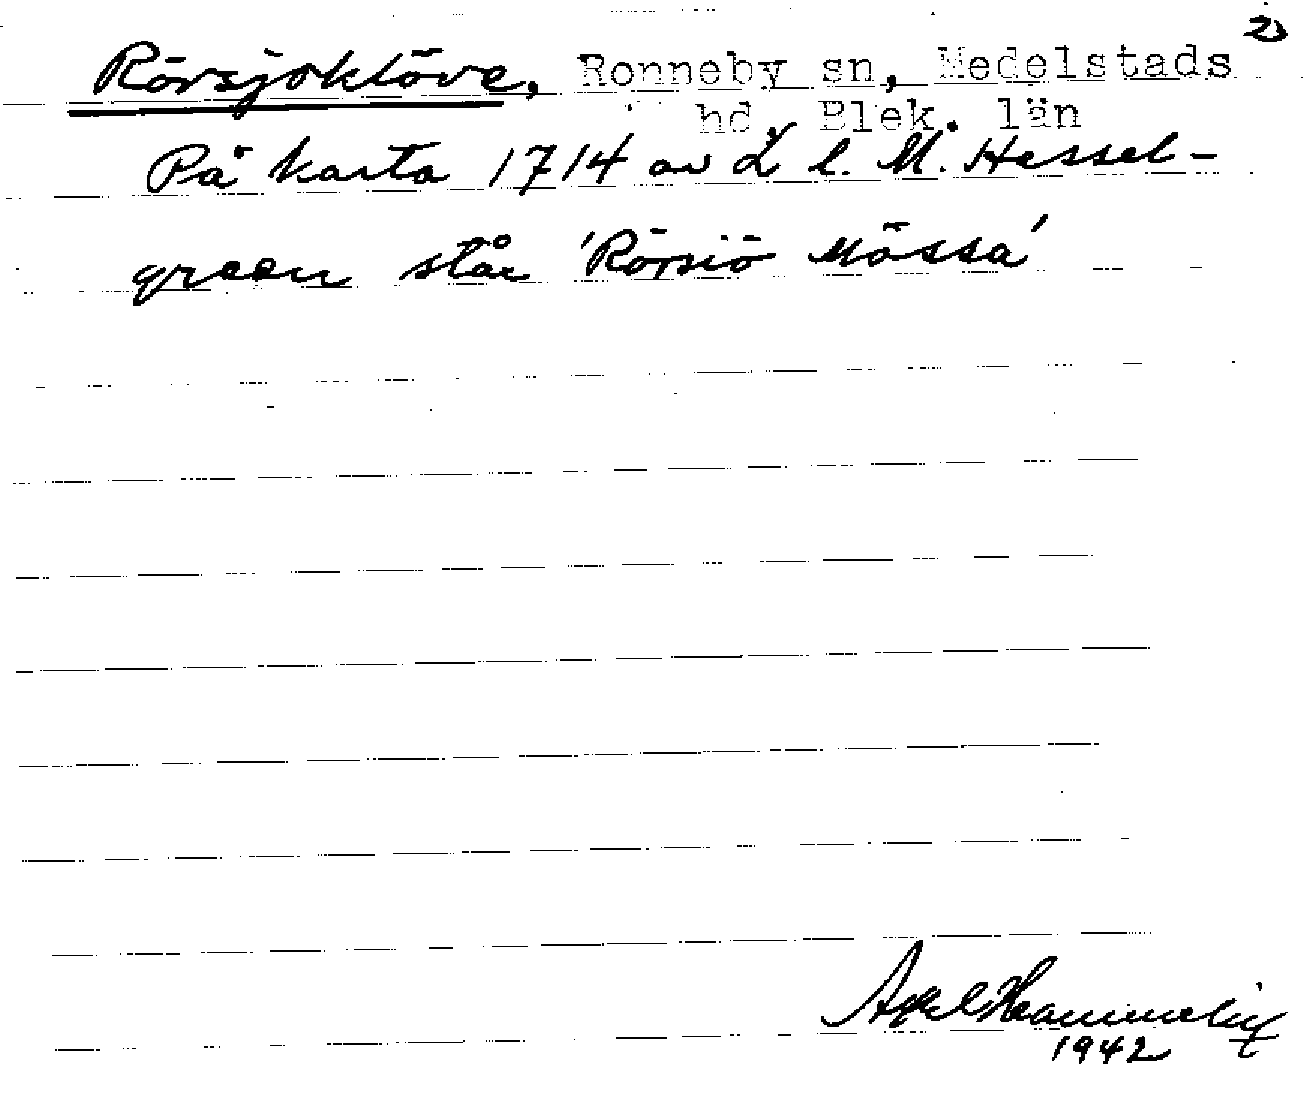 2)
Rörsjöklöve, Ronneby sn, Medelstads
hd, Blek. län
På karta 1714 av L l. M. Hessel-
green står 'Rörsiö Mössa'
Axel
1942